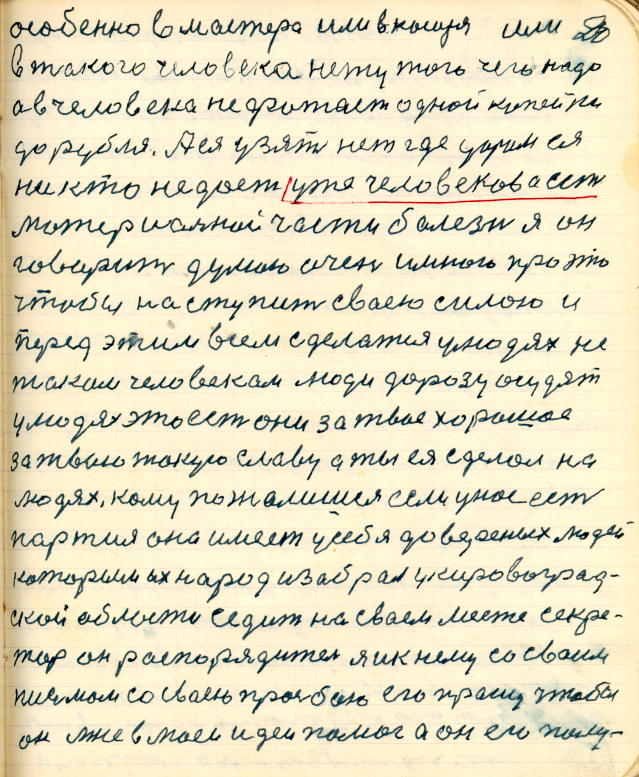 особенно в мастера или в кощя или
в такого человека нету того чего надо
а в человека не фротает одной купейки
до рубля. А ея узят нет где
никто не дает уже человекова ест
материалной части болезн я он
говорит думаю очен имного про это
чтобы наступит своею силою и
перед этим всем сделатия улюдях не
таким человекам люди дорозу осудят
улюдях это ест они за твое хорошое
за твою такую славу а ты ея сделал на
людях. кому пожалишся если унас ест
партия она имеет у себя довереных людей
которым их народ изабрал укировоград-
ской области седит на своем месте секре-
тар он распорядител я ик нему со своим
писмом со своею прозбою его прашу чтобы
он мне в моей идеи помог а он его полу-